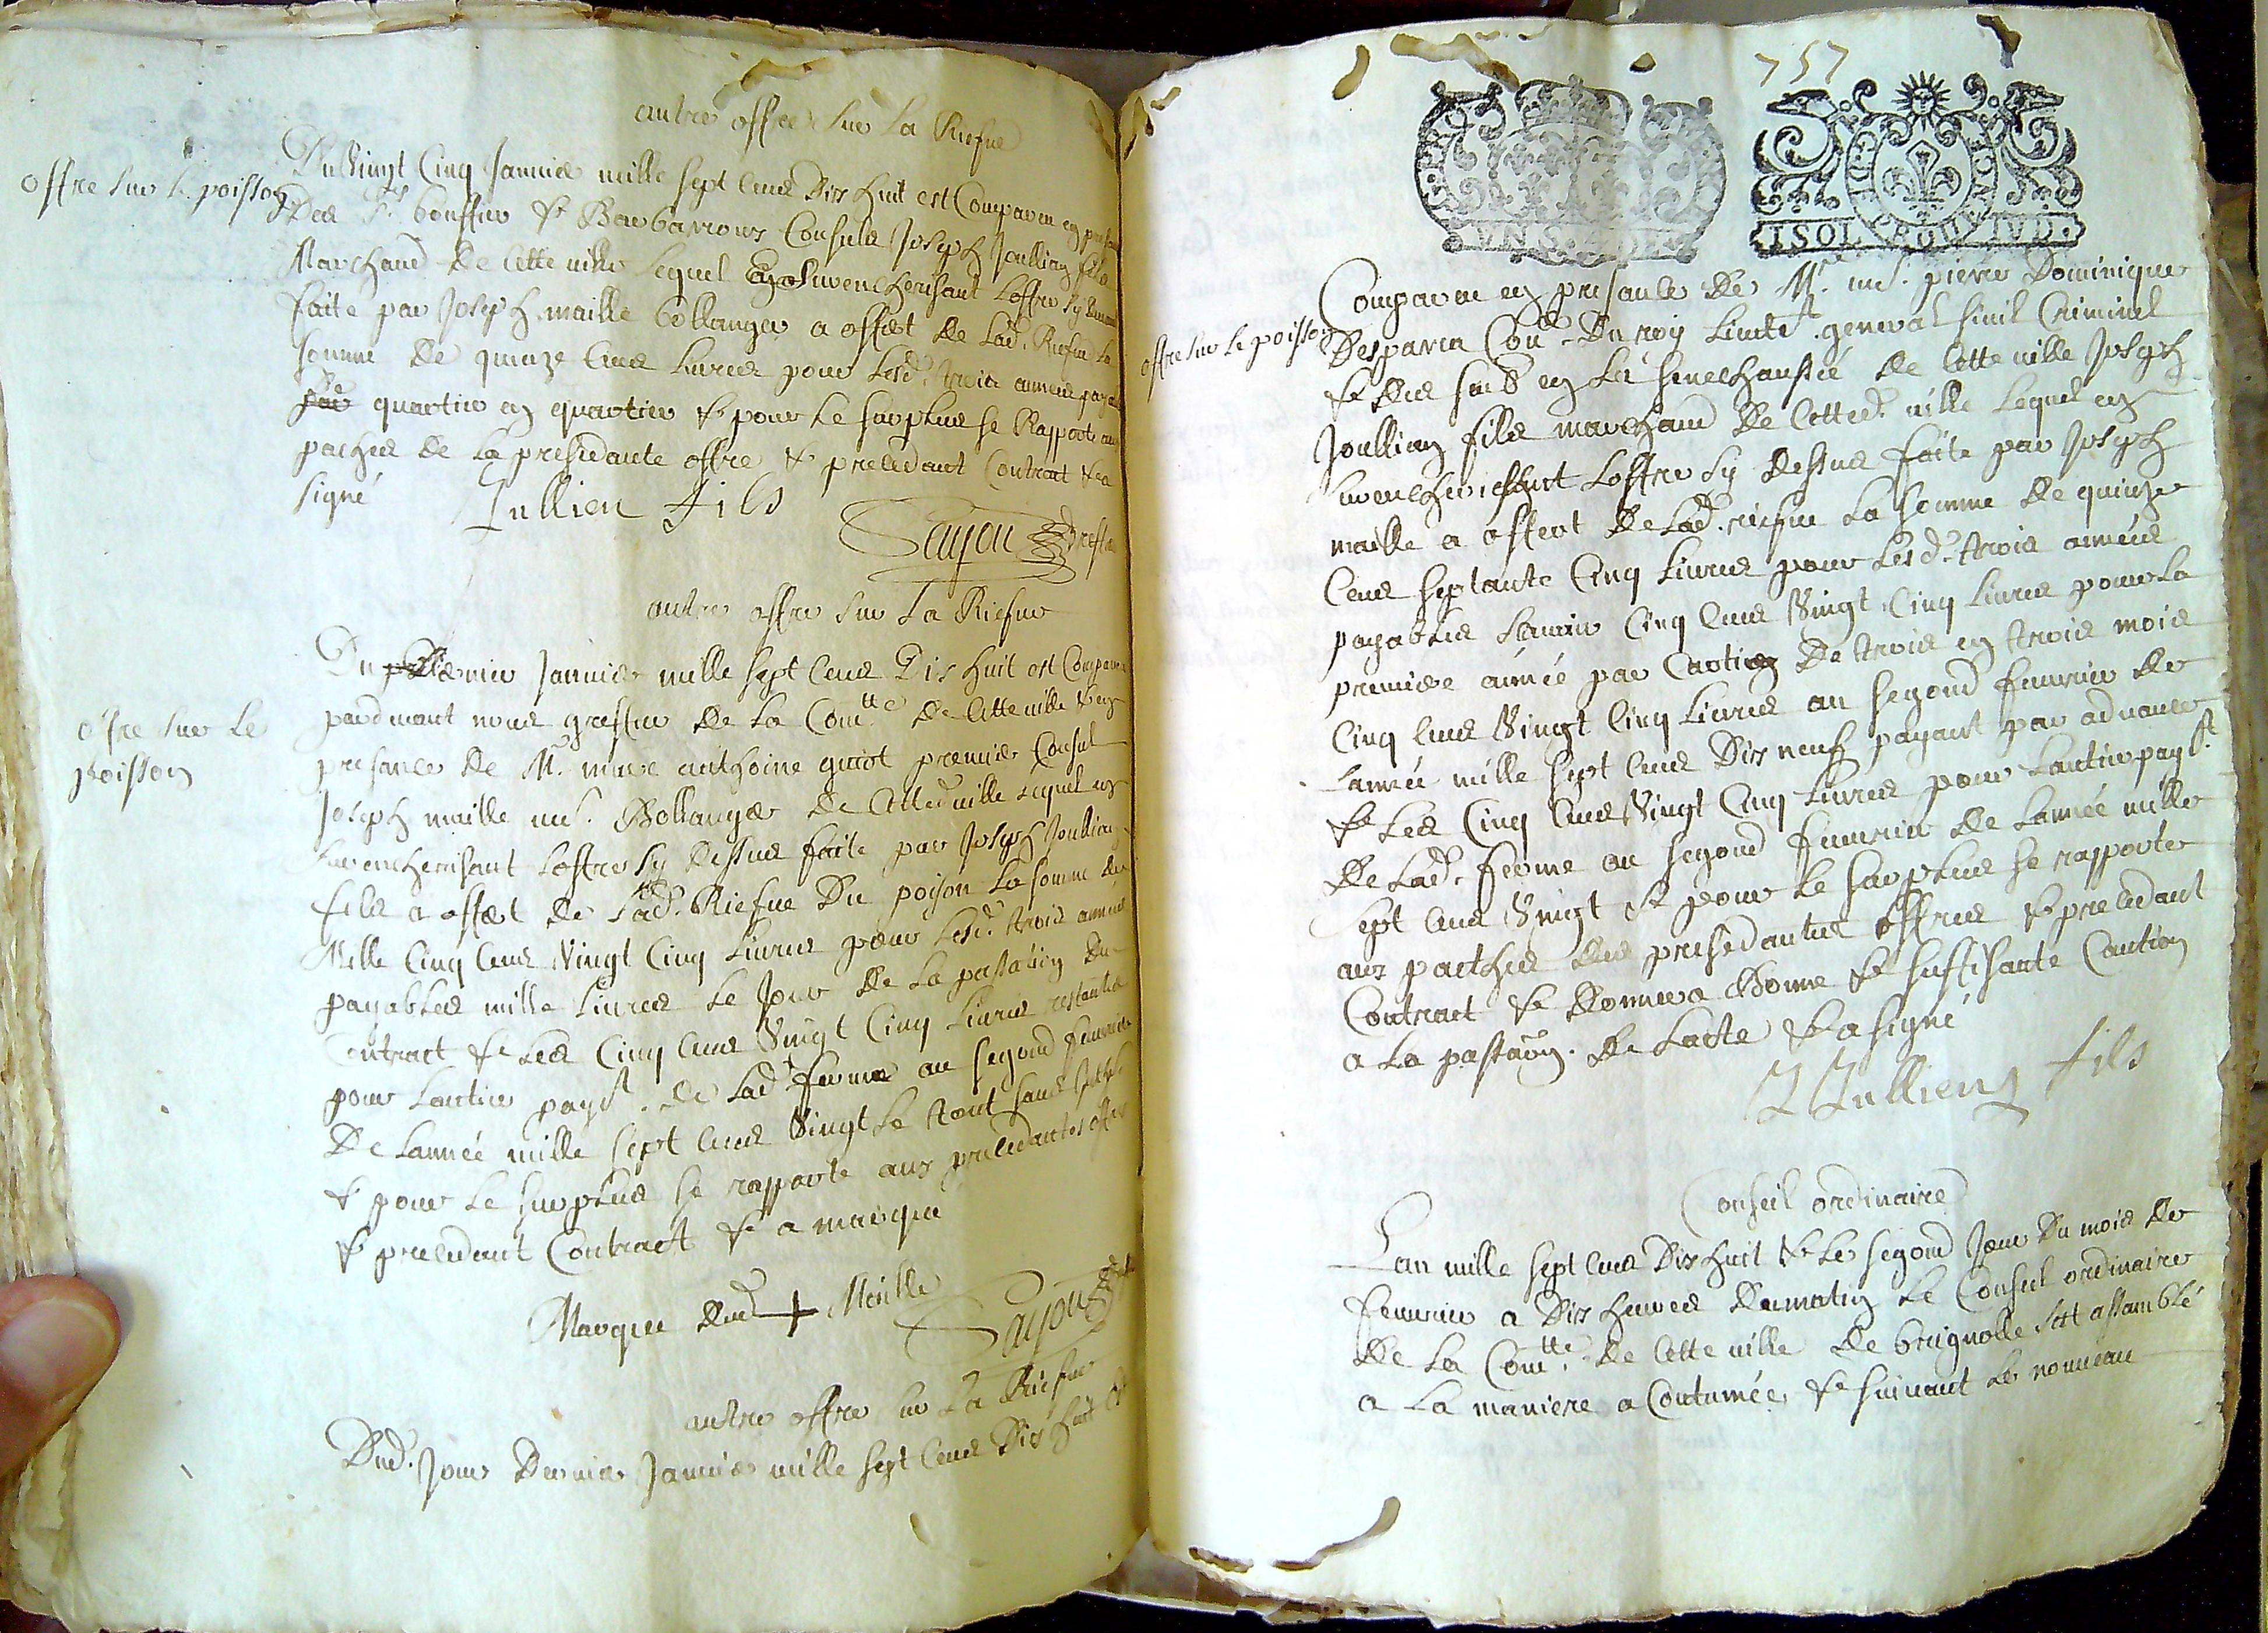 autre offre sur la Riefue
offre sur le poisson
Du Vingt Cinq Januier mille sept cens Dix huit est Comparu en
Des Srs bouffier & Barbarroux Consuls Joseph Joullian fils
Marchand de cette ville lequel En Surencherisant Loffre sy
faite par Joseph maille bollanger a offert de Lad. Riefue La
somme de quinze cens Liures pour Lesd. trois annees
par quartier en quartier & pour le surplus se Rapporte
paches de La presedante offre & precedant Contract & a
signé
Jullien fils
Sayou
autre offre sur La Riefue
offre sur Le
poisson
Du dernier Januier mille sept cens Dix huit est Comparu
pardeuant nous greffier de La Comtte de cette ville & en
presance de Mr. marc anthoine guiot premier Consul
Joseph maille Bollanger de cetted ville lequel en
surencherisant Loffre sy dessus faite par Joseph Joullian
fils a offert de Lad. Riefue Du poison La somme de
Mille Cinq cens Vingt Cinq Liures pour Lesd. trois annees
payables mille Liures Le Jour de La passation du
Contract & Les Cinq cens Vingt Cinq Liures restantes
pour Lentier payt. de Lad ferme au segond feurier
De Lannée mille sept cens Vingt Le tout sans
& pour Le surplus se rapporte aux precedantes offres
& precedant Contract & a marqué
Marque dud + Maille
Sayou
autre offre sur La Riefue
Dud. Jour Dernier Januier mille sept cens Dix huit
757
ISOL POUR IVD.
offre sur Le poisson
Comparu en presance de Mr. me. pierre Dominique
Desparra Conr. Du roy Lieutt. general siuil Criminel
& des en La senechaussée de cette ville Joseph
Joullian fils marchand de cetted. ville Lequel en
surencherissant Loffre sy dessus faite par Joseph
maille a offert de Lad. riefue La somme de quinze
cens septante Cinq Liures pour Lesd. trois années
payables scauoir Cinq cens Vingt Cinq Liures pour La
premiere année par Cartier De trois en trois mois
Cinq cens Vingt Cinq Liures au segond feurier de
Lannée mille sept cens Dix neuf payant par aduance
& Les Cinq cens Vingt Cinq Liures pour Lantier payt.
de Lad. ferme au segond feurier de Lannée mille
sept cens Vingt & pour Le surplus se rapporte
aux pacthes des presedantes offres & precedant
Contract & donnera Bonne & suffisante Caution
a La passaõn. de Lacte & a signé
J Jullieng fils
Conseil ordinaire
Lan mille sept cens Dix huit & Le segond Jour Du mois de
feurier a Dix heures du matin Le Conseil ordinaire
De La Comtte. de cette ville de brignolle sest assamblé
a La maniere a Coutumée & suiuant Le nouueau